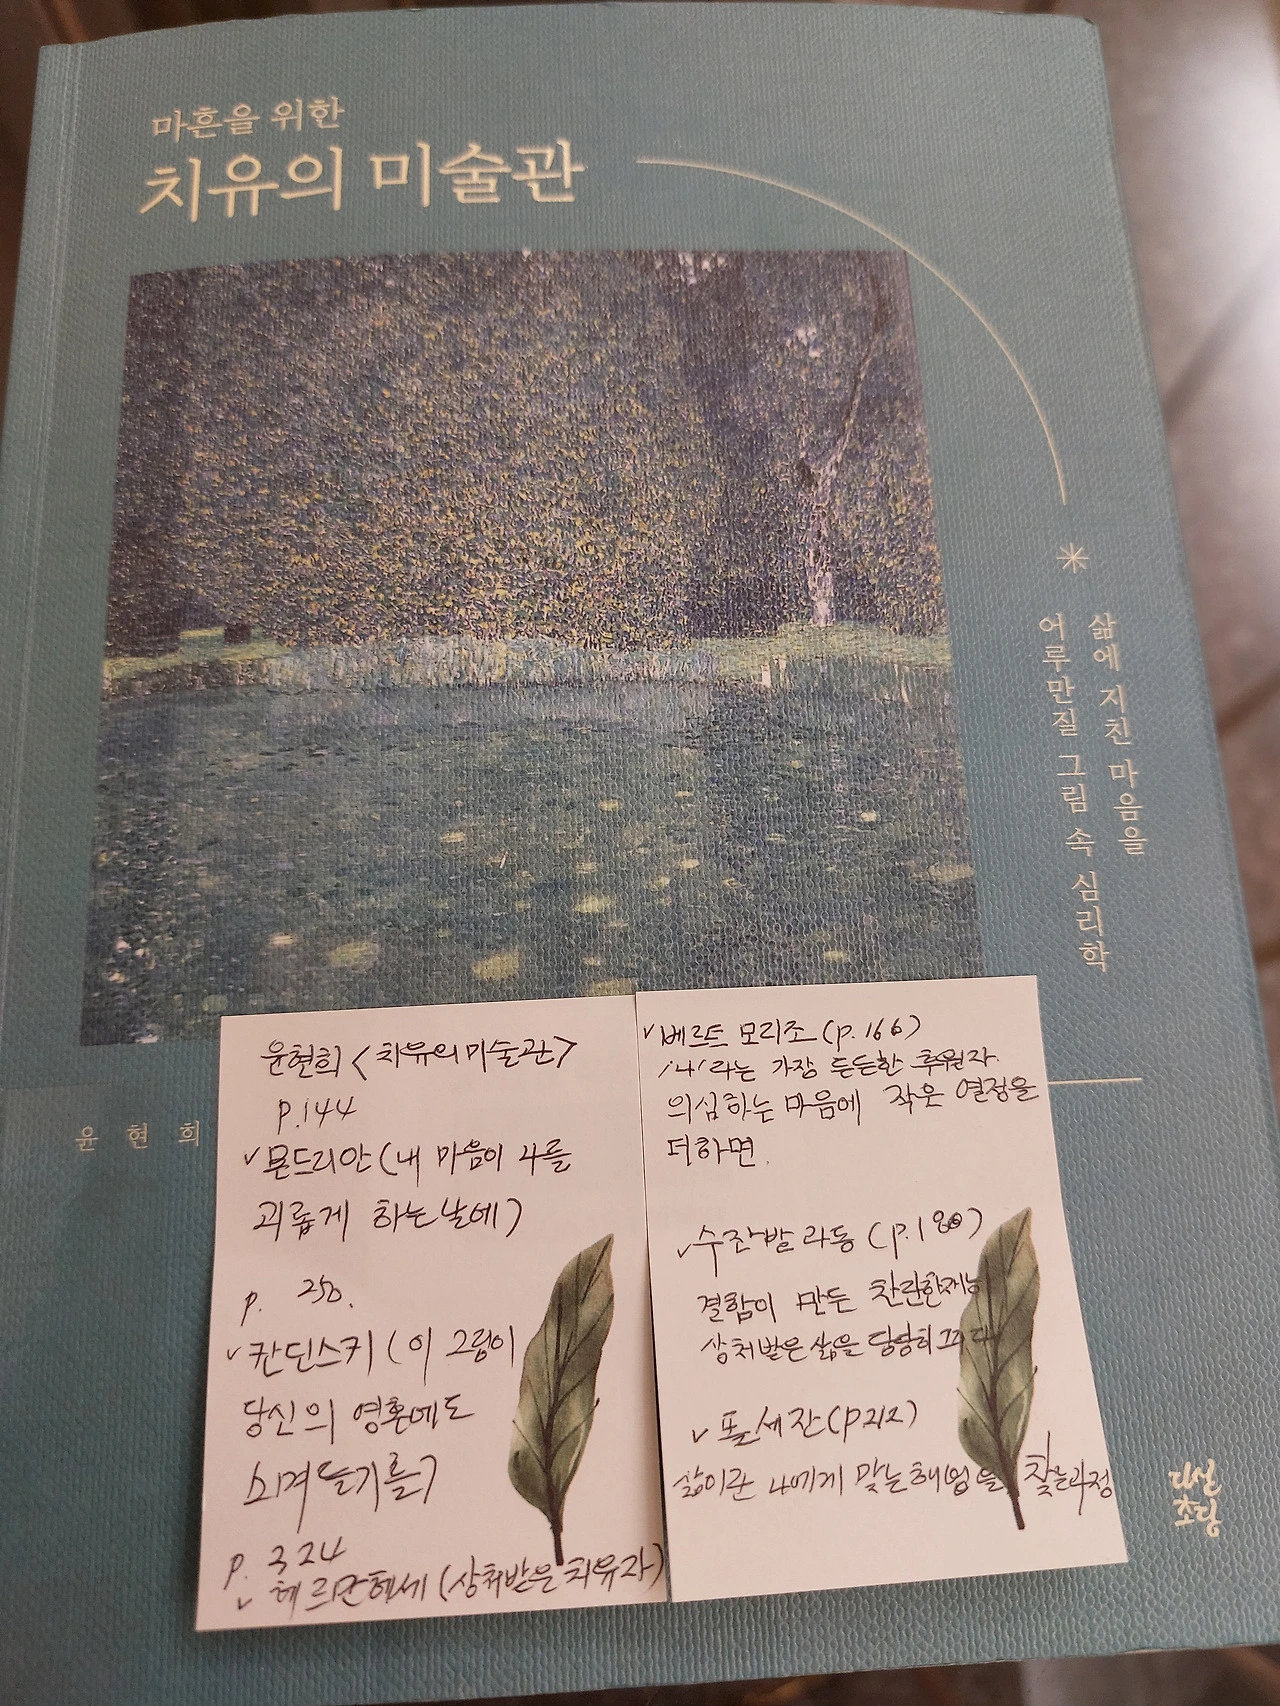 마흔을 위한
치유의 미술관
삶에 지친 마음을
어루만질 그림 속 심리학
윤현희
윤현희 <치유의 미술관>
p.144
✓몬드리안(내 마음이 나를
괴롭게 하는 날에)
p. 250.
✓칸딘스키(이 그림이
당신의 영혼에도
스며들기를)
p. 324
✓헤르만헤세(상처받은 치유자)
✓베르트 모리조(p.166)
'나'라는 가장 든든한 후원자.
의심하는 마음에 작은 열정을
더하면.
✓수잔발라동(p.180)
결함이 만든 찬란한 재능
상처받은 삶을 당당히
✓폴세잔(p212)
삶이란 나에게 맞는 해법을 찾는과정
다산
초당